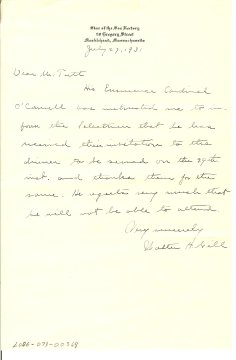 Star of the Sea Rectory
18 Gregory Street
Marblehead, Massachusetts
July 27, 1931
Dear Mr. Tutt
His Eminence Cardinal
O'Connell has instructed me to in-
form the Palestrina that he has
received their invitation to the
dinner to be served on the 29th
inst. and thanks them for the
same. He regrets very much that
he will not be able to attend.
Very sincerely
Walter H. Gill